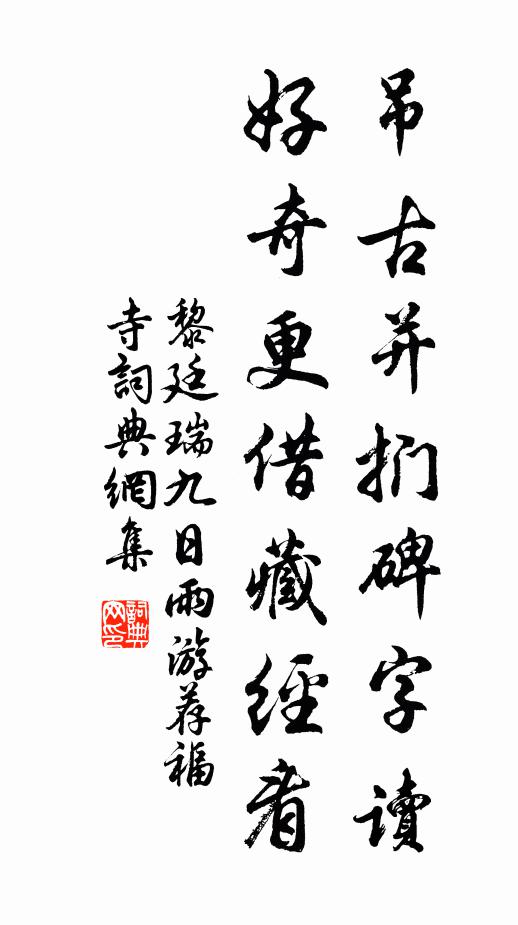 吊古并捫碑字讀
好奇更借藏經看
黎廷瑞九日雨游荐福
寺詞典網集
詞典
网印